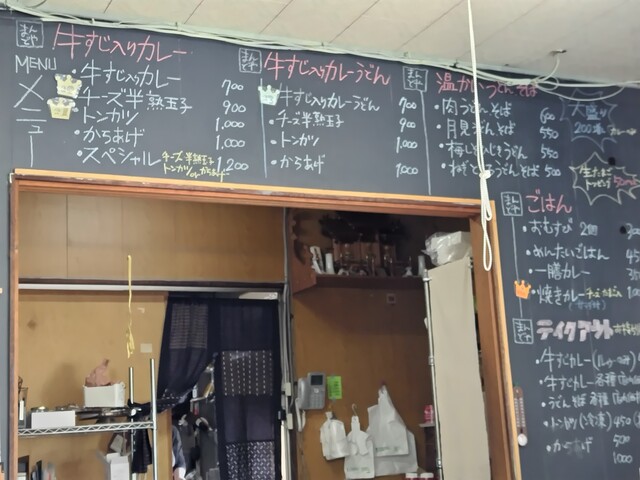 牛すじ入りカレー
MENU
メニュー
・牛すじ入りカレー 700
・チーズ半熟玉子 900
・トンカツ 1,000
・からあげ 1,000
・スペシャル チーズ半熟玉子 トンカツ orからあげ 1,200
牛すじ入りカレーうどん
・牛すじ入りカレーうどん 700
・チーズ半熟玉子 900
・トンカツ 1,000
・からあげ 1000
温かいうどんそば
・肉うどんそば 600
・月見うどんそば 550
・うどん 550
・うどんそば 500
大盛り
200円
生たまご
トッピング 50円
ごはん
・おむすび 2個
・めんたいごはん
・一膳カレー
・焼きカレー
テイクアウト
・牛すじカレー
・牛すじカレー各種
・うどんそば各種
・トンカツ(冷凍) 450
・からあげ 500
1000